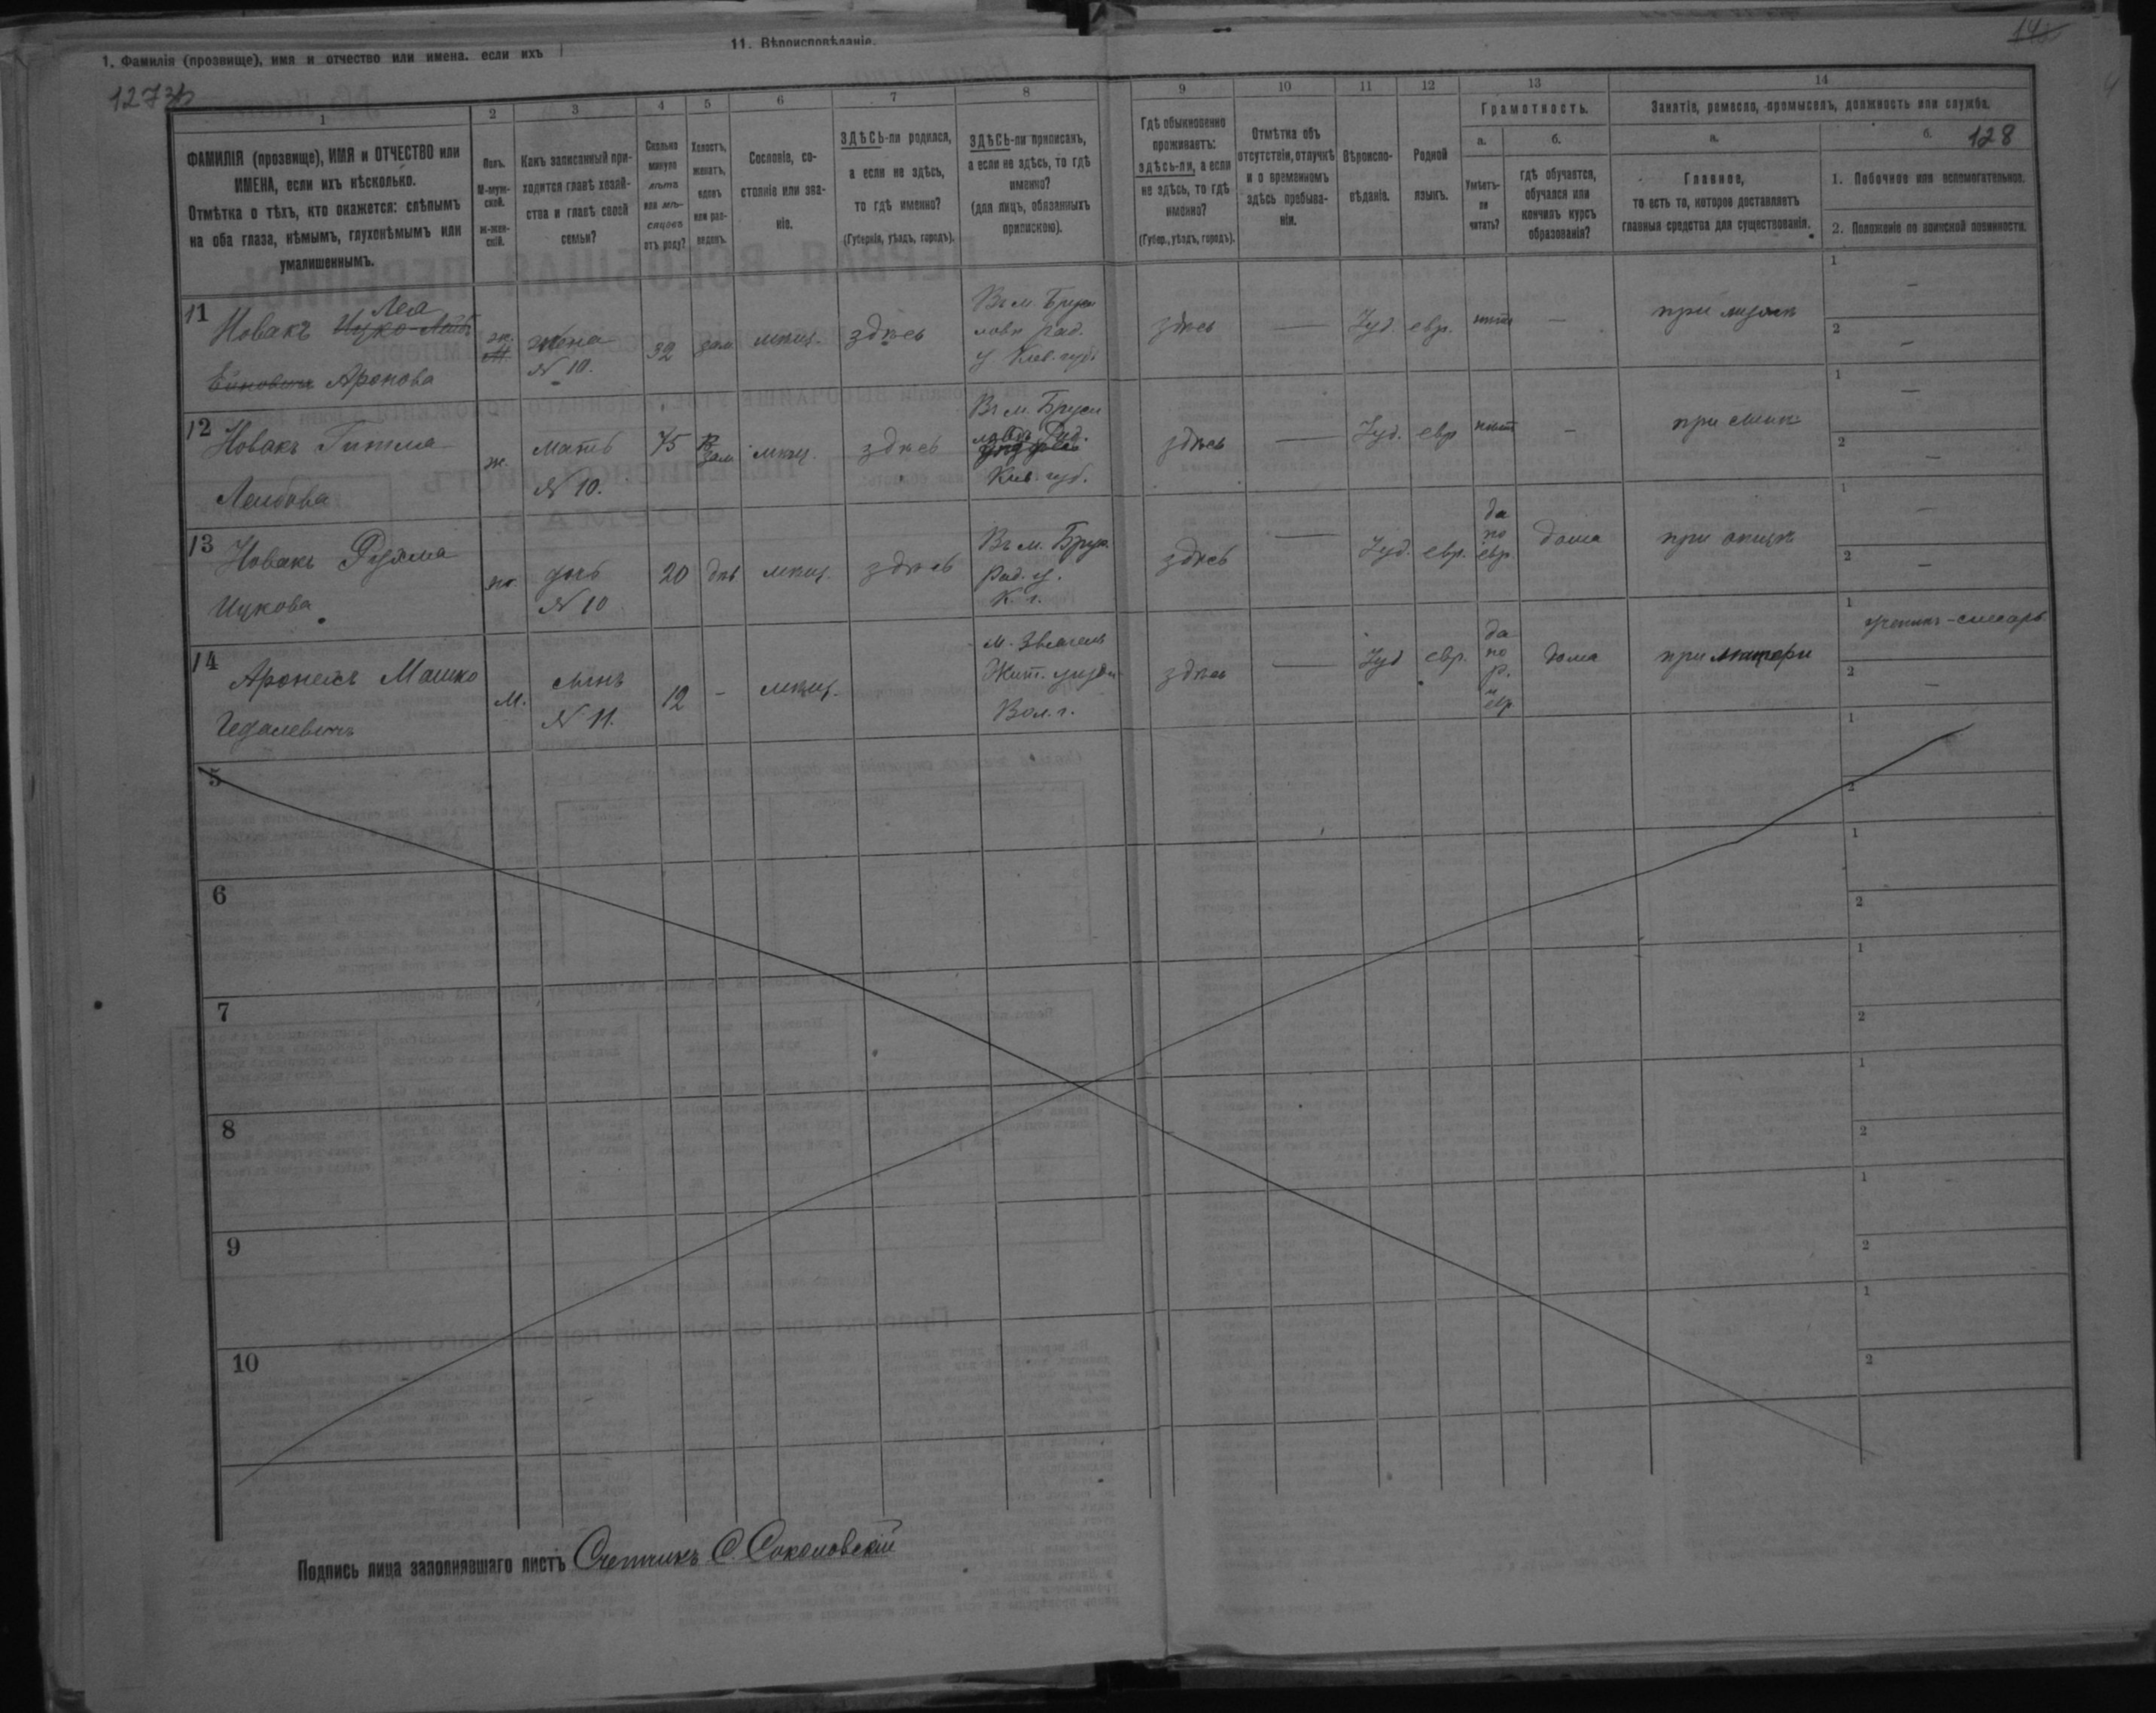 1. Фамилія (прозвище), имя и отчество или имена. если ихъ
11. Вѣроисповѣданіе.
142
1273
1 2 3 4 5 6 7 8 9 10 11 12 13 14
ФАМИЛІЯ (прозвище), ИМЯ и ОТЧЕСТВО или
ИМЕНА, если ихъ нѣсколько.
Отмѣтка о тѣхъ, кто окажется: слѣпымъ
на оба глаза, нѣмымъ, глухонѣмымъ или
умалишеннымъ.
Полъ.
М-муж-
ской.
Ж-жен-
скій.
Какъ записанный при-
ходится главѣ хозяй-
ства и главѣ своей
семьи?
Сколько
минуло
лѣтъ
или мѣ-
сяцевъ
отъ роду?
Холостъ,
женатъ,
вдовъ
или раз-
веденъ.
Сословіе, со-
стояніе или зва-
ніе.
ЗДѢСЬ-ли родился,
а если не здѣсь,
то гдѣ именно?
(Губернія, уѣздъ, городъ).
ЗДѢСЬ-ли приписанъ,
а если не здѣсь, то гдѣ
именно?
(для лицъ, обязанныхъ
припискою).
Гдѣ обыкновенно
проживаетъ:
здѣсь-ли, а если
не здѣсь, то гдѣ
именно?
(Губер., уѣздъ, городъ).
Отмѣтка объ
отсутствіи, отлучкѣ
и о временномъ
здѣсь пребыва-
ніи.
Вѣроиспо-
вѣданіе.
Родной
языкъ.
Грамотность.
а. б.
Умѣетъ-
ли
читать?
гдѣ обучается,
обучался или
кончилъ курсъ
образованія?
Занятіе, ремесло, промыселъ, должность или служба.
а. б. 128
Главное,
то есть то, которое доставляетъ
главныя средства для существованія.
1. Побочное или вспомогательное.
2. Положеніе по воинской повинности.
11
Леа
Новакъ Ицко-Лейбъ
Аронова
ж.
М.
жена
N 10.
32
зам.
мѣщ.
здѣсь
Въ м. Бруси
ловѣ Рад.
у Кіев. губ.
здѣсь
—
Іуд.
евр.
нѣтъ
—
при мужѣ
1 —
2 —
12
Новакъ Гитля
Лейбова
ж.
мать
N 10.
75
В
зам
мѣщ.
здѣсь
Въ м. Бруси
ловѣ Рад.
Кіев. губ.
здѣсь
—
Іуд.
евр
нѣтъ
—
при сынѣ
1 —
2 —
13
Новакъ Рухля
Ицкова
ж.
дочь
N 10
20
дѣв
мѣщ.
здѣсь
Въ м. Брус.
Рад. у.
К. г.
здѣсь
—
Іуд.
евр.
да
по
евр.
дома
при отцѣ
1 —
2 —
14
Аронесъ Мошко
Гедалевичъ
М.
сынъ
N 11.
12
-
мѣщ.
м.
Жит. уѣзда
Вол. г.
здѣсь
—
Іуд
евр.
да
по
р.
и
евр
дома
при матери
1 ученикъ-слесарь
2 —
5
1
2
6
1
2
7
1
2
8
1
2
9
1
2
10
1
2
Подпись лица заполнявшаго листъ Счетчикъ С. Соколовскій